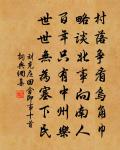 村落爭看烏角巾
略談北事向南人
百年只有中州樂
世世無為塞下民
刘克庄田舍即事十首
詞典網集